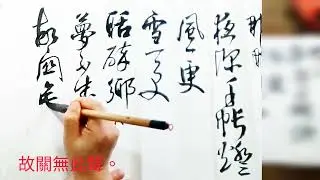 那畔
夜深千帳燈
風一更
雪一更
聒碎鄉
夢不成
故園無
故關無此聲。